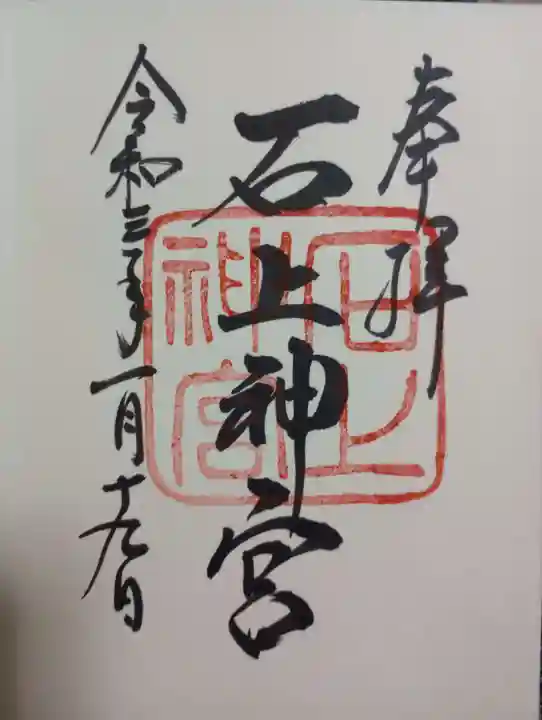 奉拝
石上神宮
石上
神宮
令和三年一月十九日